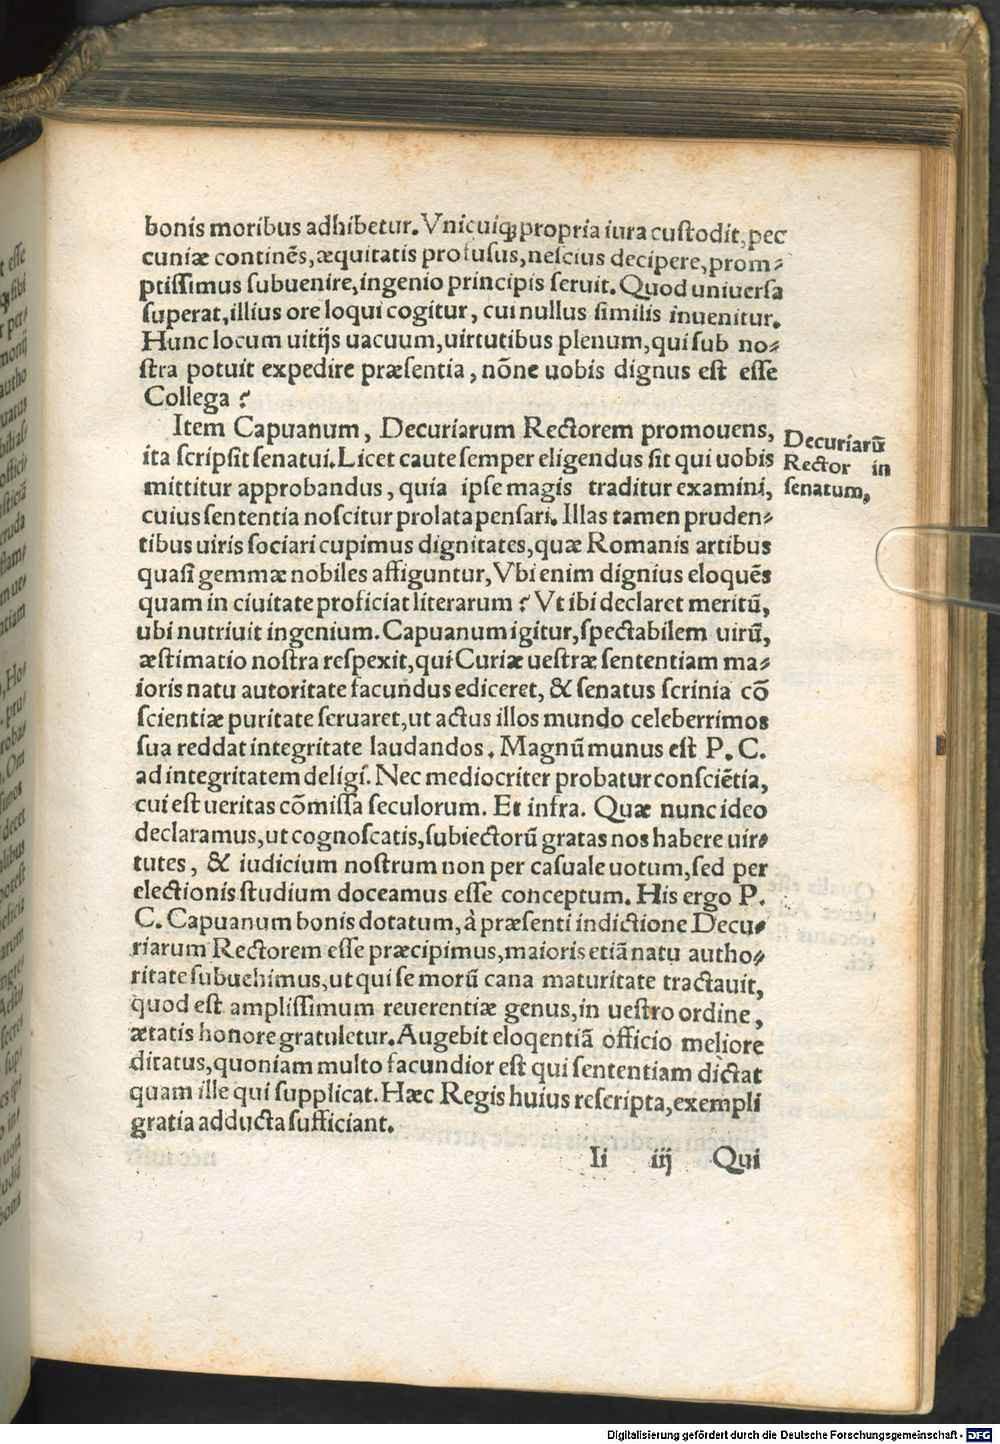 bonis moribus adhibetur. Vnicuiqꝫ propria iura custodit, pec
cuniæ continẽs, æquitatis profusus, nescius decipere, prom⸗
ptissimus subuenire, ingenio principis seruit. Quod uniuersa
superat, illius ore loqui cogitur, cui nullus similis inuenitur.
Hunc locum uitijs uacuum, uirtutibus plenum, qui sub no⸗
stra potuit expedire præsentia, nõne uobis dignus est esse
Collega?
Item Capuanum, Decuriarum Rectorem promouens,
ita scripsit senatui. Licet caute semper eligendus sit qui uobis
mittitur approbandus, quia ipse magis traditur examini,
cuius sententia noscitur prolata pensari. Illas tamen pruden⸗
tibus uiris sociari cupimus dignitates, quæ Romanis artibus
quasi gemmæ nobiles affiguntur, Vbi enim dignius eloquẽs
quam in ciuitate proficiat literarum? Vt ibi declaret meritũ,
ubi nutriuit ingenium. Capuanum igitur, spectabilem uirũ,
æstimatio nostra respexit, qui Curiæ uestræ sententiam ma⸗
ioris natu autoritate facundus ediceret, & senatus scrinia cõ
scientiæ puritate seruaret, ut actus illos mundo celeberrimos
sua reddat integritate laudandos. Magnũ munus est P. C.
ad integritatem deligi. Nec mediocriter probatur consciẽtia,
cui est ueritas cõmissa seculorum. Et infra. Quæ nunc ideo
declaramus, ut cognoscatis, subiectorũ gratas nos habere uir⸗
tutes, & iudicium nostrum non per casuale uotum, sed per
electionis studium doceamus esse conceptum. His ergo P.
C. Capuanum bonis dotatum, à præsenti indictione Decu⸗
riarum Rectorem esse præcipimus, maioris etiã natu autho⸗
ritate subuehimus, ut qui se morũ cana maturitate tractauit,
quod est amplissimum reuerentiæ genus, in uestro ordine,
ætatis honore gratuletur. Augebit eloqentiã officio meliore
ditatus, quoniam multo facundior est qui sententiam dictat
quam ille qui supplicat. Hæc Regis huius rescripta, exempli
gratia adducta sufficiant.
Ii iij Qui
Decuriarũ
Rector in
senatum,
Digitalisierung gefördert durch die Deutsche Forschungsgemeinschaft - DFG